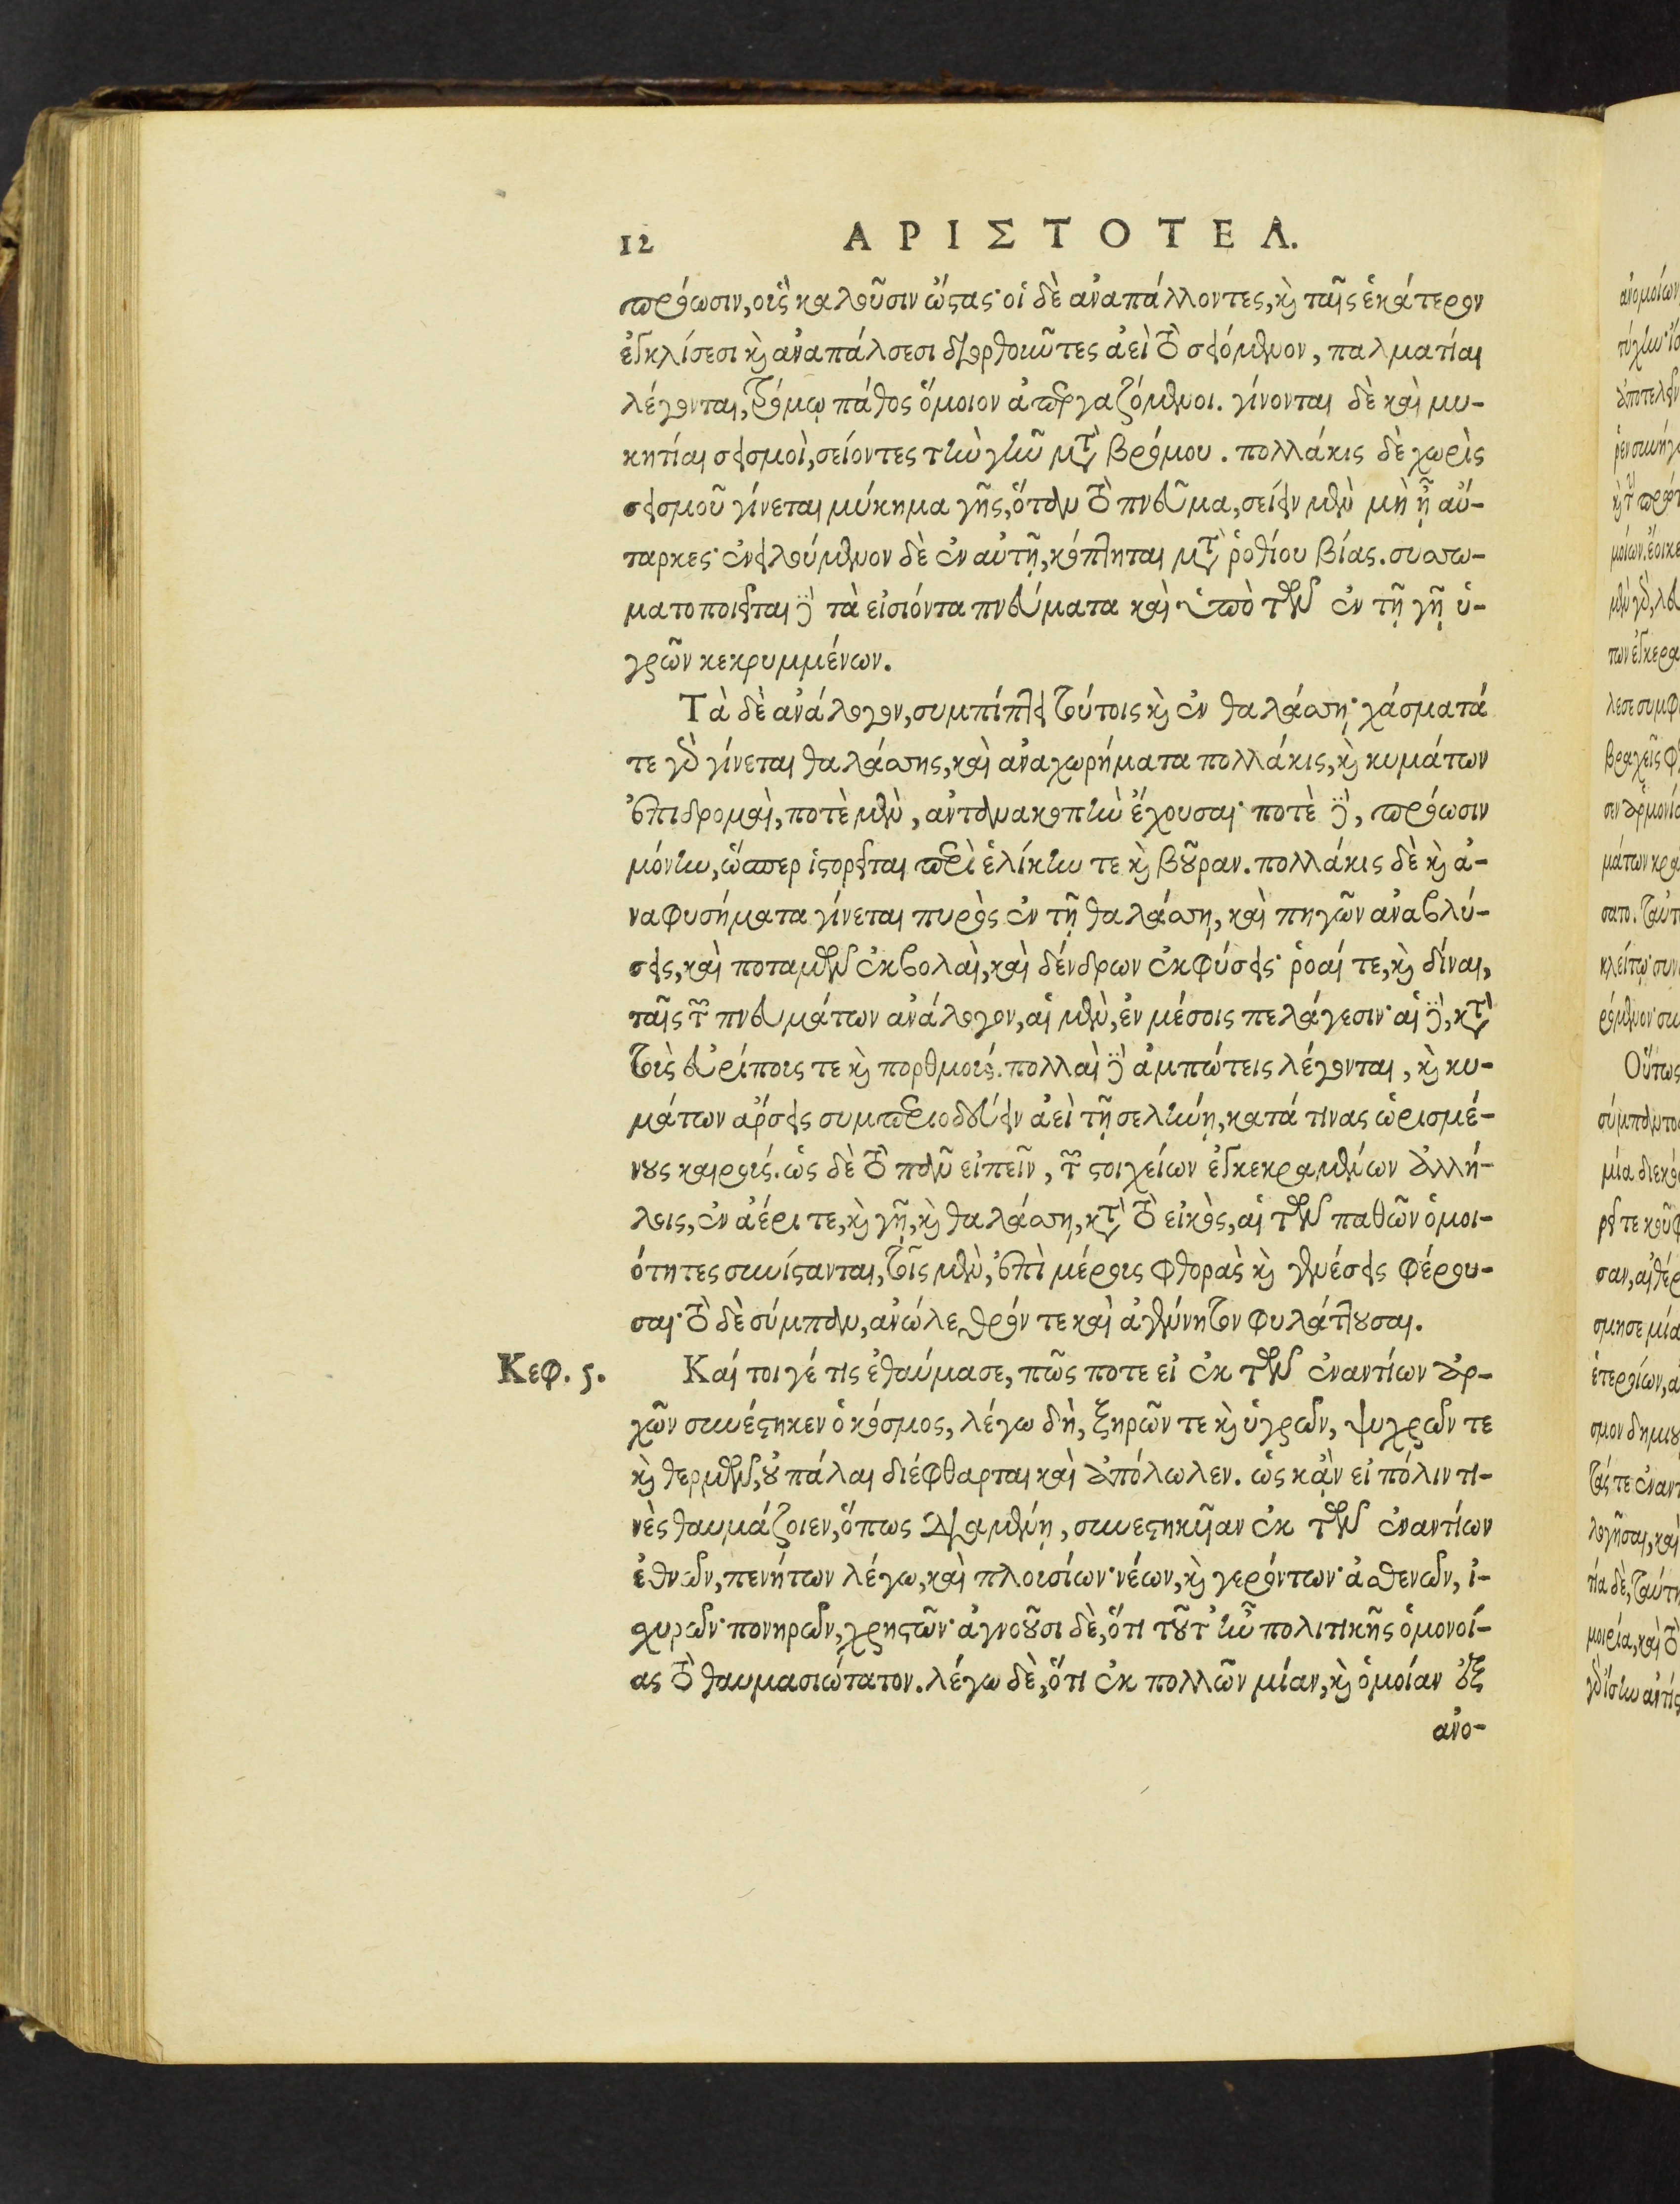 12 ΑΡΙΣΤΟΤΕΛ.
πρόωσιν, οὓς καλοῦσιν ὤστας· οἱ δὲ ἀναπάλλοντες, καὶ ταῖς ἑκάτερον
ἐγκλίσεσι καὶ ἀναπάλσεσι διορθοῦντες ἀεὶ τὸ σειόμενον, παλματίαι
λέγονται, τρόμῳ πάθος ὅμοιον ἀπεργαζόμενοι. γίνονται δὲ καὶ μυ-
κητίαι σεισμοὶ, σείοντες τὴν γῆν μετὰ βρόμου. πολλάκις δὲ χωρὶς
σεισμοῦ γίνεται μύκημα γῆς, ὅταν τὸ πνεῦμα, σείειν μὲν μὴ ᾖ αὔ-
ταρκες· ἐνειλούμενον δὲ ἐν αὐτῇ, κόπτηται μετὰ ῥοθίου βίας. συσσω-
ματοποιεῖται δὲ τὰ εἰσιόντα πνεύματα καὶ ὑπὸ τῶν ἐν τῇ γῇ ὑ-
γρῶν κεκρυμμένων.
Τὰ δὲ ἀνάλογον, συμπίπτει τούτοις καὶ ἐν θαλάσσῃ· χάσματά
τε γὰρ γίνεται θαλάσσης, καὶ ἀναχωρήματα πολλάκις, καὶ κυμάτων
ἐπιδρομαὶ, ποτὲ μὲν, ἀντανακοπὴν ἔχουσαι· ποτὲ δὲ, πρόωσιν
μόνην, ὥσπερ ἱστορεῖται περὶ ἑλίκην τε καὶ βοῦραν. πολλάκις δὲ καὶ ἀ-
ναφυσήματα γίνεται πυρὸς ἐν τῇ θαλάσσῃ, καὶ πηγῶν ἀναβλύ-
σεις, καὶ ποταμῶν ἐκβολαὶ, καὶ δένδρων ἐκφύσεις· ῥοαί τε, καὶ δίναι,
ταῖς τῶν πνευμάτων ἀνάλογον, αἱ μὲν, ἐν μέσοις πελάγεσιν· αἱ δὲ, κατὰ
τοὺς εὐρίπους τε καὶ πορθμούς. πολλαὶ δὲ ἀμπώτεις λέγονται, καὶ κυ-
μάτων ἄρσεις συμπεριοδεύειν ἀεὶ τῇ σελήνῃ, κατά τινας ὡρισμέ-
νους καιρούς. ὡς δὲ τὸ πᾶν εἰπεῖν, τῶν στοιχείων ἐγκεκραμένων ἀλλή-
λοις, ἐν ἀέρι τε, καὶ γῇ, καὶ θαλάσσῃ, κατὰ τὸ εἰκὸς, αἱ τῶν παθῶν ὁμοι-
ότητες συνίστανται, τοῖς μὲν, ἐπὶ μέρους φθορὰς καὶ γενέσεις φέρου-
σαι· τὸ δὲ σύμπαν, ἀνώλεθρόν τε καὶ ἀγένητον φυλάττουσαι.
Κεφ. 5. Καί τοι γέ τις ἐθαύμασε, πῶς ποτε εἰ ἐκ τῶν ἐναντίων ἀρ-
χῶν συνέστηκεν ὁ κόσμος, λέγω δὴ, ξηρῶν τε καὶ ὑγρῶν, ψυχρῶν τε
καὶ θερμῶν, οὐ πάλαι διέφθαρται καὶ ἀπόλωλεν. ὡς κᾂν εἰ πόλιν τι-
νὲς θαυμάζοιεν, ὅπως διαμένῃ, συνεστηκυῖαν ἐκ τῶν ἐναντίων
ἐθνῶν, πενήτων λέγω, καὶ πλουσίων· νέων, καὶ γερόντων· ἀσθενῶν, ἰ-
σχυρῶν· πονηρῶν, χρηστῶν· ἀγνοοῦσι δὲ, ὅτι τοῦτ' ἦν πολιτικῆς ὁμονοί-
ας τὸ θαυμασιώτατον. λέγω δὲ, ὅτι ἐκ πολλῶν μίαν, καὶ ὁμοίαν ἐξ
ἀνο-